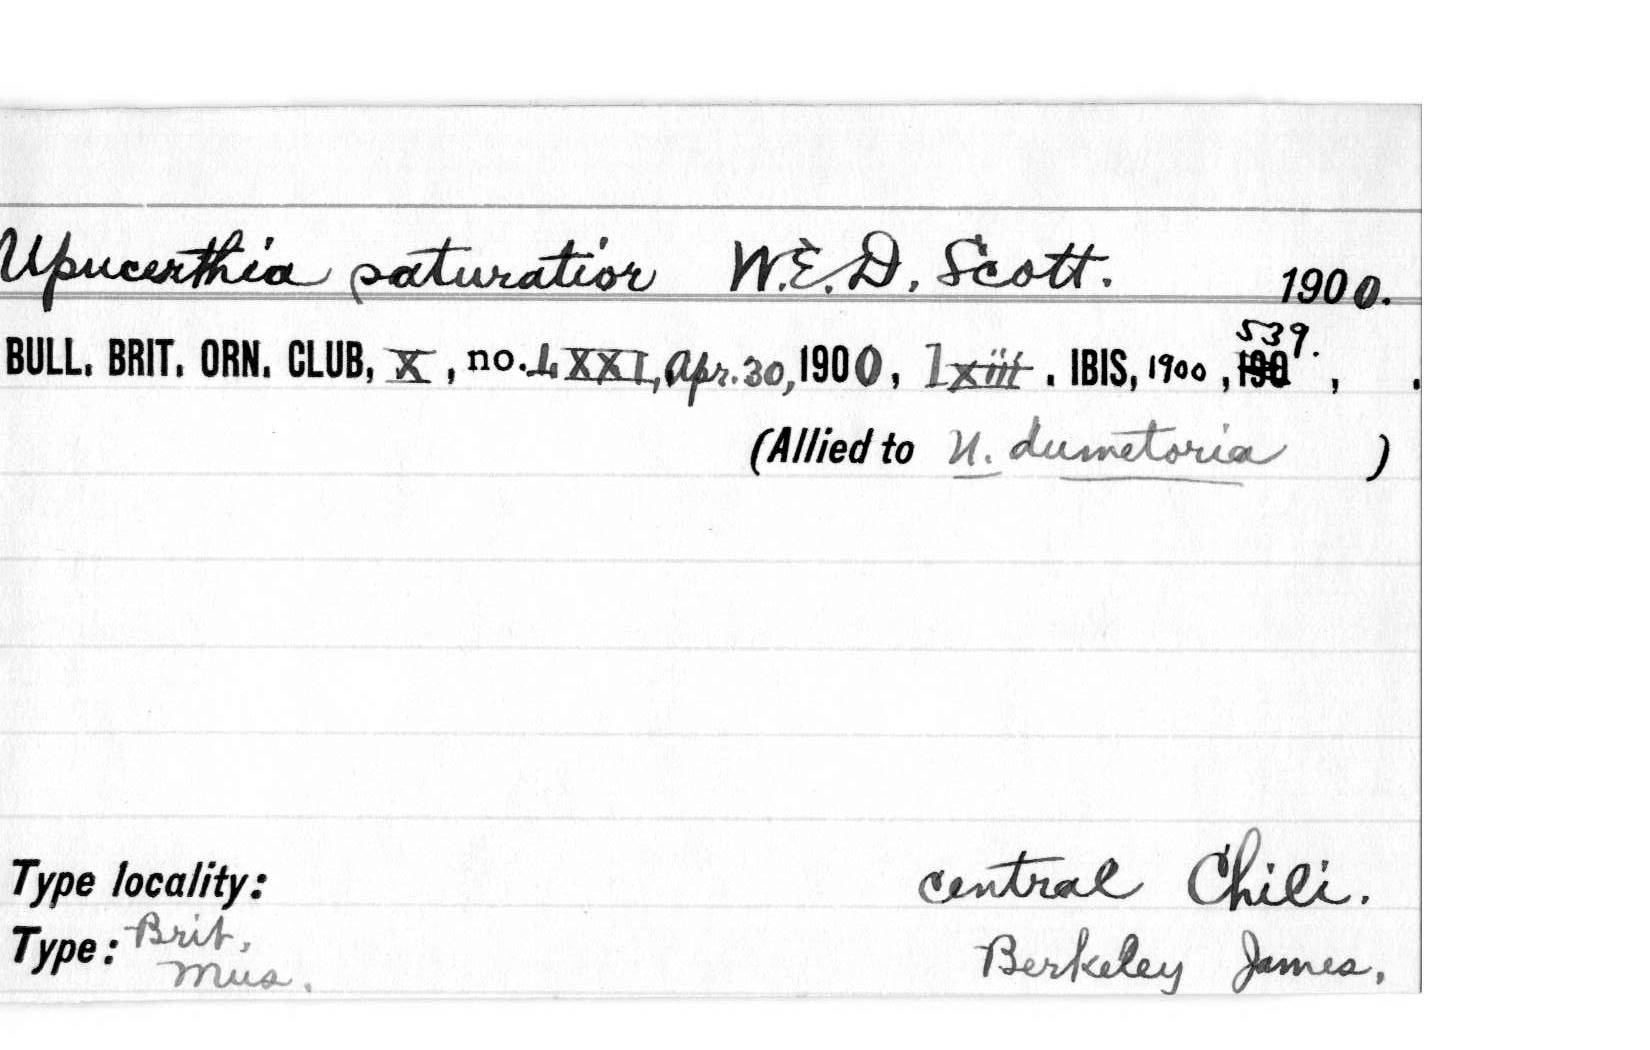 Upucerthia saturatior W.E.D. Scott. 1900.
BULL. BRIT. ORN. CLUB, X, no. LXXI, Apr. 30, 1900, lxiii. IBIS, 1900, 539.
(Allied to U. dumetoria )
Type locality: central Chili.
Type: Brit. Mus. Berkeley James.